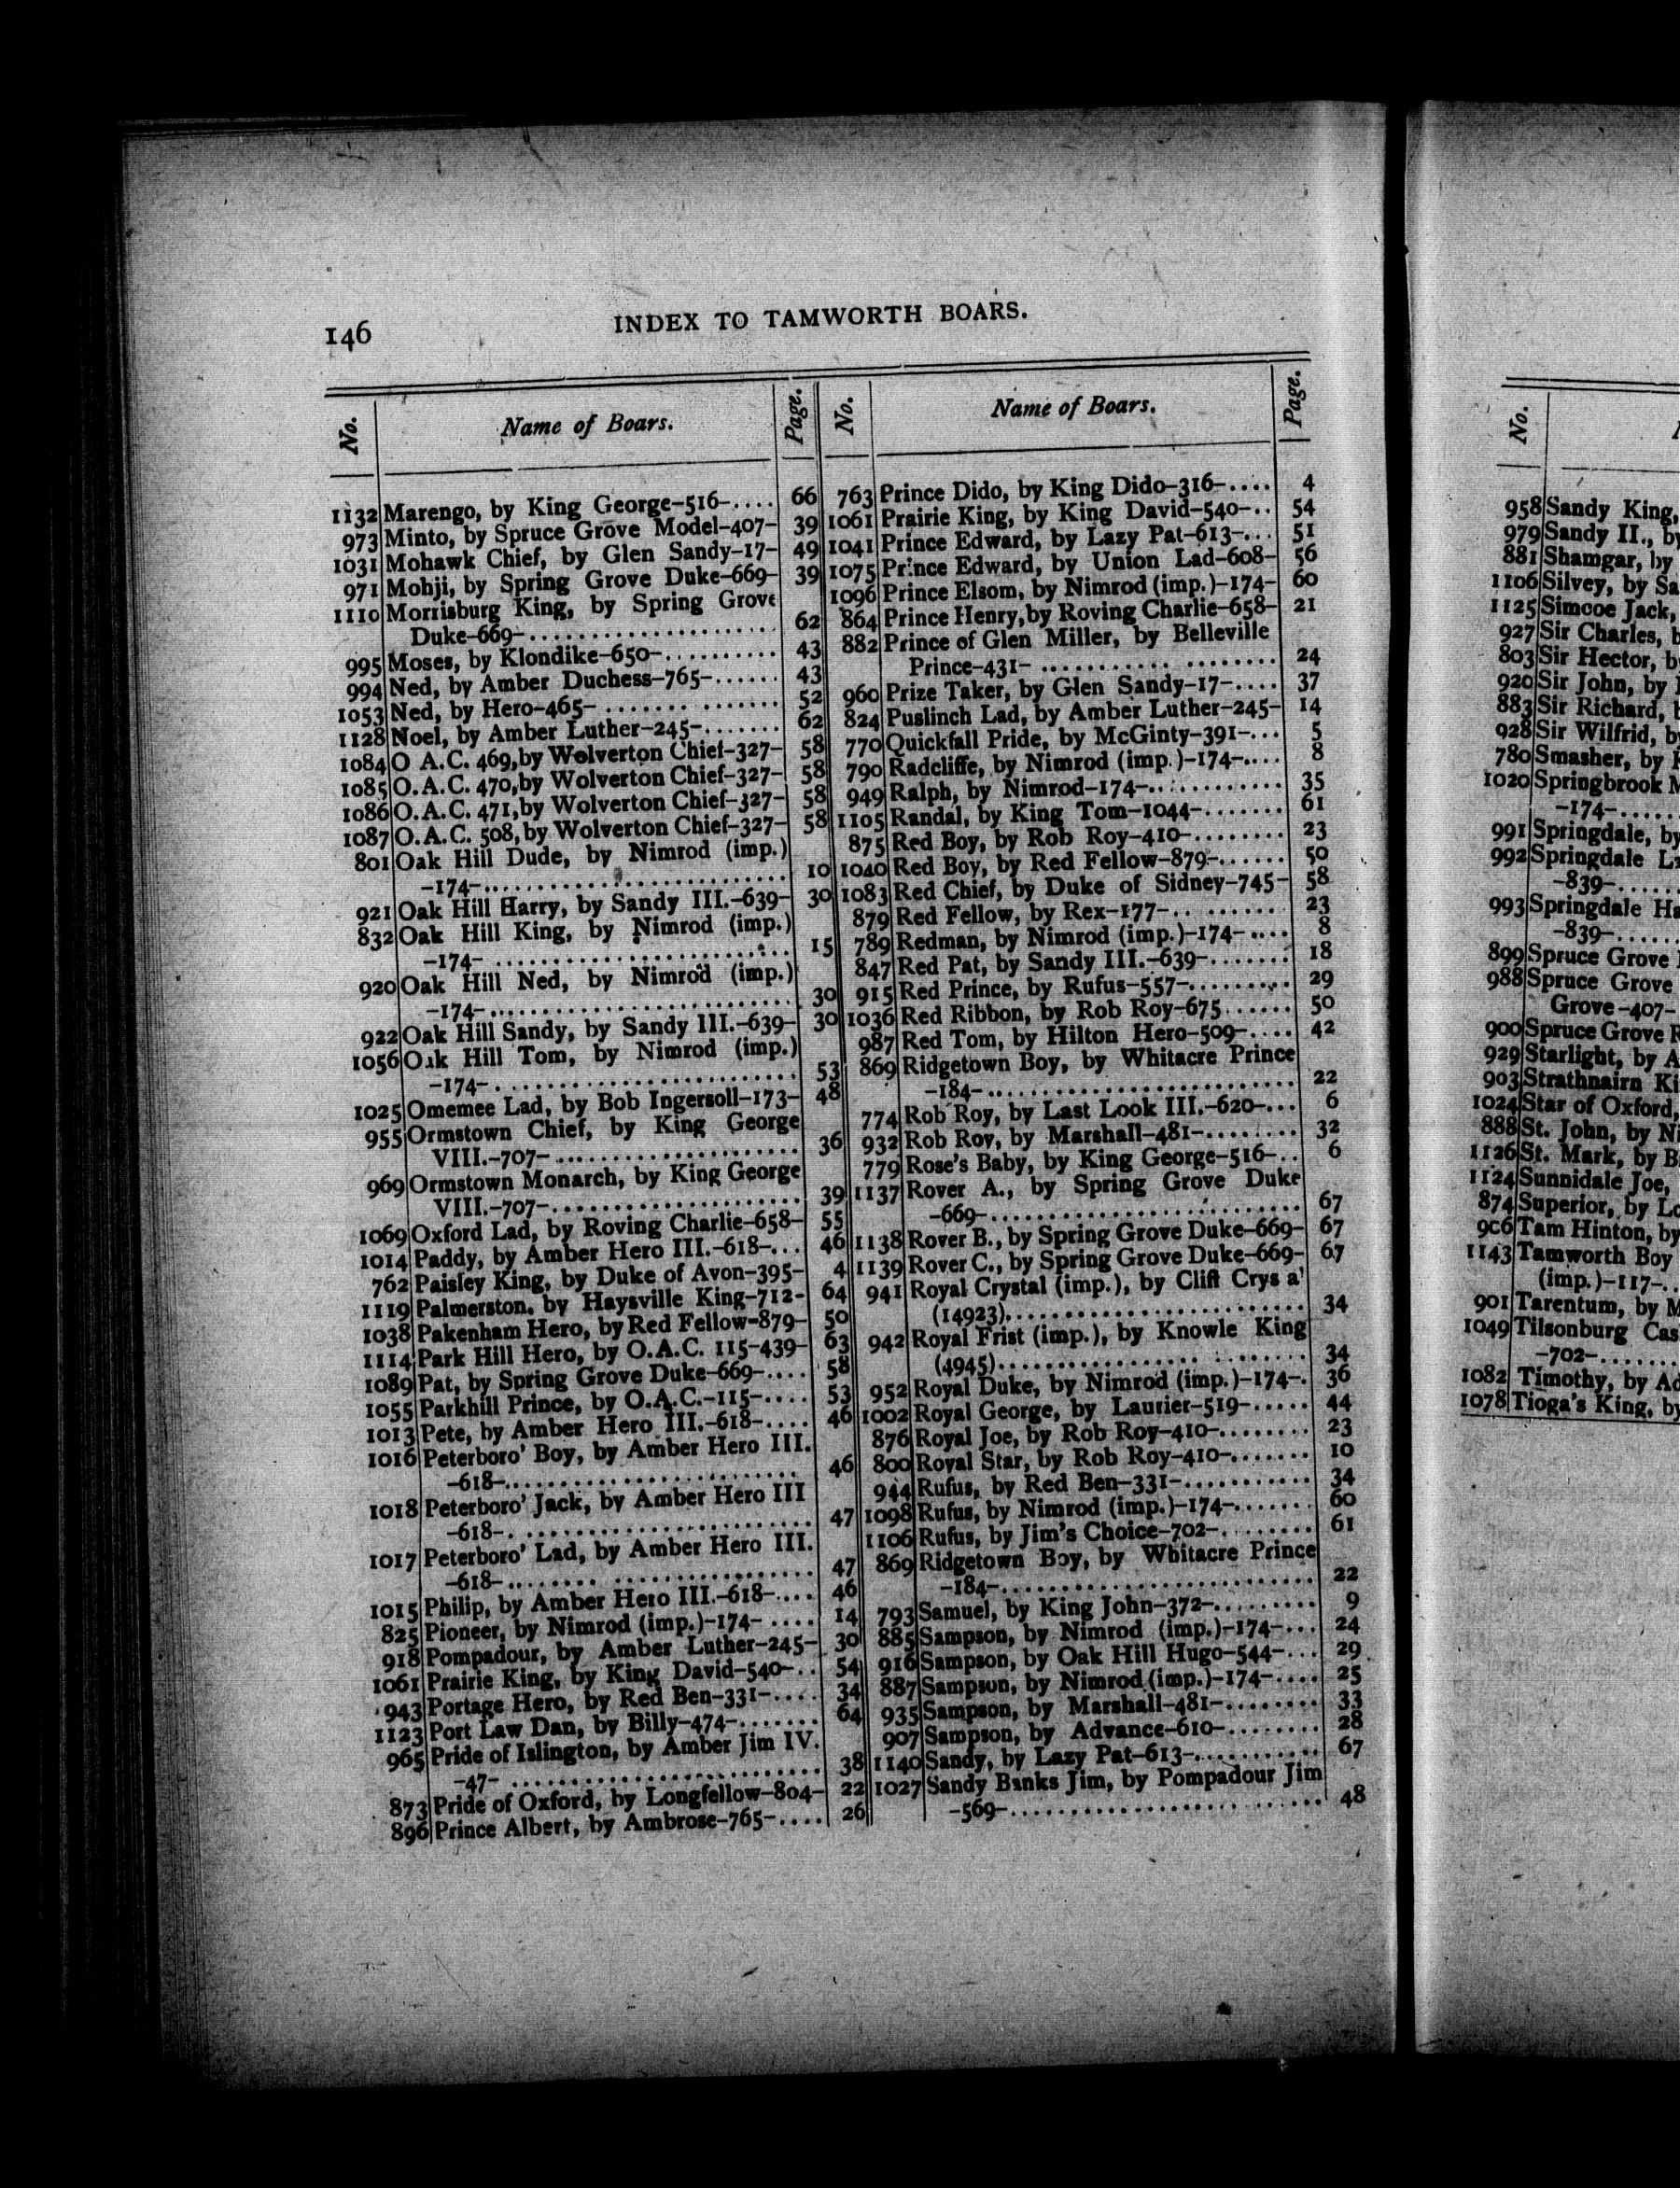 146
INDEX TO TAMWORTH BOARS.
No.
Name of Boars.
Page.
1132 Marengo, by King George-516-.... 66
973 Minto, by Spruce Grove Model-407- 39
1031 Mohawk Chief, by Glen Sandy-17- 49
971 Mohji, by Spring Grove Duke-669- 39
1110 Morrisburg King, by Spring Grove
Duke-669-.................... 62
995 Moses, by Klondike-650-.......... 43
994 Ned, by Amber Duchess-765-...... 43
1053 Ned, by Hero-465- ........ ....... 52
1128 Noel, by Amber Luther-245-....... 62
1084 O A.C. 469, by Wolverton Chief-327- 58
1085 O.A.C. 470, by Wolverton Chief-327- 58
1086 O.A.C. 471, by Wolverton Chief-327- 58
1087 O.A.C. 508, by Wolverton Chief-327- 58
801 Oak Hill Dude, by Nimrod (imp.)
-174-......................... 10
921 Oak Hill Harry, by Sandy III.-639- 30
832 Oak Hill King, by Nimrod (imp.)
-174- ........................ 15
920 Oak Hill Ned, by Nimrod (imp.)
-174-......................... 30
922 Oak Hill Sandy, by Sandy III.-639- 30
1056 Oak Hill Tom, by Nimrod (imp.)
-174-......................... 53
1025 Omemee Lad, by Bob Ingersoll-173- 48
955 Ormstown Chief, by King George
VIII.-707-.................... 36
969 Ormstown Monarch, by King George
VIII.-707-.................... 39
1069 Oxford Lad, by Roving Charlie-658- 55
1014 Paddy, by Amber Hero III.-618-... 46
762 Paisley King, by Duke of Avon-395- 4
1119 Palmerston, by Haysville King-712- 64
1038 Pakenham Hero, by Red Fellow-879- 50
1114 Park Hill Hero, by O.A.C. 115-439- 63
1089 Pat, by Spring Grove Duke-669-.... 58
1055 Parkhill Prince, by O.A.C.-115-.... 53
1013 Pete, by Amber Hero III.-618-.... 46
1016 Peterboro' Boy, by Amber Hero III.
-618-........................ 46
1018 Peterboro' Jack, by Amber Hero III
-618-. ....................... 47
1017 Peterboro' Lad, by Amber Hero III.
-618-........ ................ 47
1015 Philip, by Amber Hero III.-618-.... 46
825 Pioneer, by Nimrod (imp.)-174- .... 14
918 Pompadour, by Amber Luther-245- 30
1061 Prairie King, by King David-540-.. 54
943 Portage Hero, by Red Ben-331-.... 34
1123 Port Law Dan, by Billy-474-....... 64
965 Pride of Islington, by Amber Jim IV.
-47- ......................... 38
873 Pride of Oxford, by Longfellow-804- 22
896 Prince Albert, by Ambrose-765-.... 26
No.
Name of Boars.
Page.
763 Prince Dido, by King Dido-316-.... 4
1061 Prairie King, by King David-540-.. 54
1041 Prince Edward, by Lazy Pat-613-... 51
1075 Prince Edward, by Union Lad-608- 56
1096 Prince Elsom, by Nimrod (imp.)-174- 60
864 Prince Henry, by Roving Charlie-658- 21
882 Prince of Glen Miller, by Belleville
Prince-431- ........... ........ 24
960 Prize Taker, by Glen Sandy-17-.... 37
824 Puslinch Lad, by Amber Luther-245- 14
770 Quickfall Pride, by McGinty-391-... 5
790 Radcliffe, by Nimrod (imp.)-174-.... 8
949 Ralph, by Nimrod-174-........... 35
1105 Randal, by King Tom-1044-....... 61
875 Red Boy, by Rob Roy-410-........ 23
1040 Red Boy, by Red Fellow-879-...... 50
1083 Red Chief, by Duke of Sidney-745- 58
879 Red Fellow, by Rex-177-.. ....... 23
789 Redman, by Nimrod (imp.)-174-.... 8
847 Red Pat, by Sandy III.-639-....... 18
915 Red Prince, by Rufus-557-......... 29
1036 Red Ribbon, by Rob Roy-675...... 50
987 Red Tom, by Hilton Hero-509-.... 42
869 Ridgetown Boy, by Whitacre Prince
-184-......................... 22
774 Rob Roy, by Last Look III.-620-... 6
932 Rob Roy, by Marshall-481-........ 32
779 Rose's Baby, by King George-516-.. 6
1137 Rover A., by Spring Grove Duke
-669-......................... 67
1138 Rover B., by Spring Grove Duke-669- 67
1139 Rover C., by Spring Grove Duke-669- 67
941 Royal Crystal (imp.), by Clift Crys a'
(14923)....................... 34
942 Royal Frist (imp.), by Knowle King
(4945)................ ........ 34
952 Royal Duke, by Nimrod (imp.)-174-. 36
1002 Royal George, by Laurier-519-..... 44
876 Royal Joe, by Rob Roy-410-........ 23
800 Royal Star, by Rob Roy-410-....... 10
944 Rufus, by Red Ben-331-........... 34
1098 Rufus, by Nimrod (imp.)-174-....... 60
1106 Rufus, by Jim's Choice-702-........ 61
869 Ridgetown Boy, by Whitacre Prince
-184-......................... 22
793 Samuel, by King John-372-......... 9
885 Sampson, by Nimrod (imp.)-174-... 24
916 Sampson, by Oak Hill Hugo-544-... 29
887 Sampson, by Nimrod (imp.)-174-.... 25
935 Sampson, by Marshall-481-........ 33
907 Sampson, by Advance-610-........ 28
1140 Sandy, by Lazy Pat-613-........... 67
1027 Sandy Banks Jim, by Pompadour Jim
-569-......................... 48
No.
958 Sandy King,
979 Sandy II., by
881 Shamgar, by
1106 Silvey, by Sa
1125 Simcoe Jack,
927 Sir Charles,
803 Sir Hector, b
920 Sir John, by
883 Sir Richard,
928 Sir Wilfrid, by
780 Smasher, by
1020 Springbrook M
-174-.....
991 Springdale, by
992 Springdale L
-839-......
993 Springdale Ha
-839-......
899 Spruce Grove
988 Spruce Grove
Grove-407-
900 Spruce Grove R
929 Starlight, by A
903 Strathnairn Ki
1024 Star of Oxford,
888 St. John, by Ni
1126 St. Mark, by B
1124 Sunnidale Joe,
874 Superior, by Lo
906 Tam Hinton, by
1143 Tamworth Boy
(imp.)-117-.
901 Tarentum, by M
1049 Tilsonburg Cas
-702-.......
1082 Timothy, by Ad
1078 Tioga's King, by